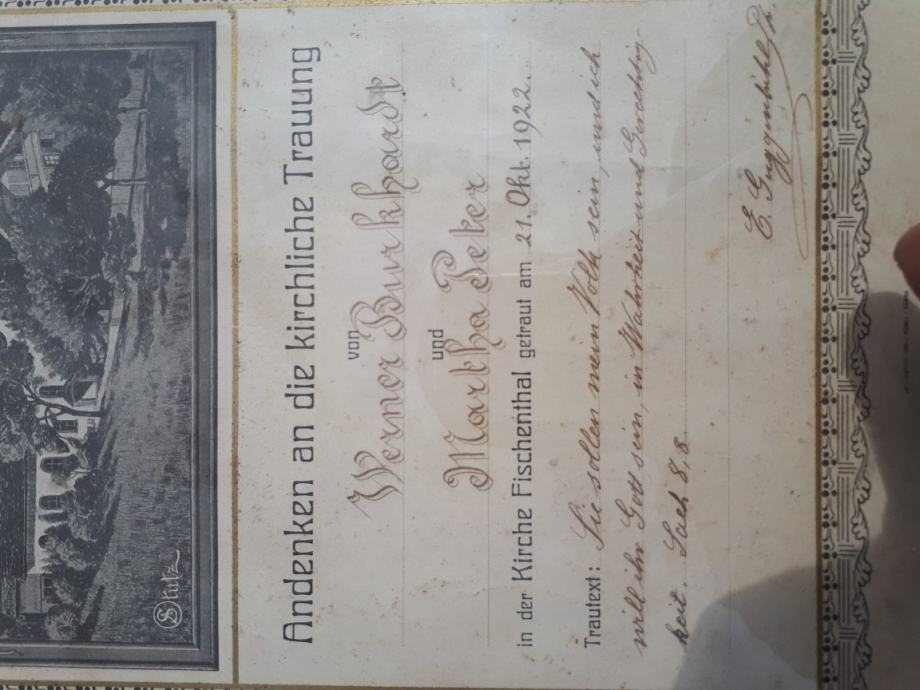 Stutz
Andenken an die kirchliche Trauung
von
Werner Burkhardt
und
Martha Peter
in der Kirche Fischenthal getraut am 21. Okt. 1922.
Trautext: Sie sollen mein Volk sein, und ich
will ihr Gott sein, in Wahrheit und Gerechtig-
keit. Sach 8,8.
E. Guggenbühl, Pf.